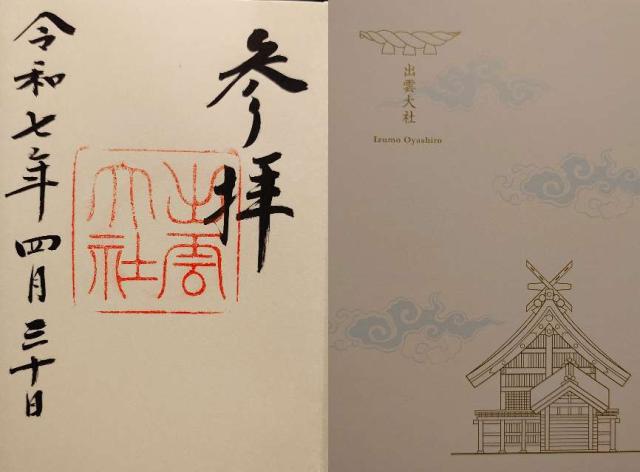 参拝
出雲
大社
令和七年四月三十日
出雲大社
Izumo Oyashiro